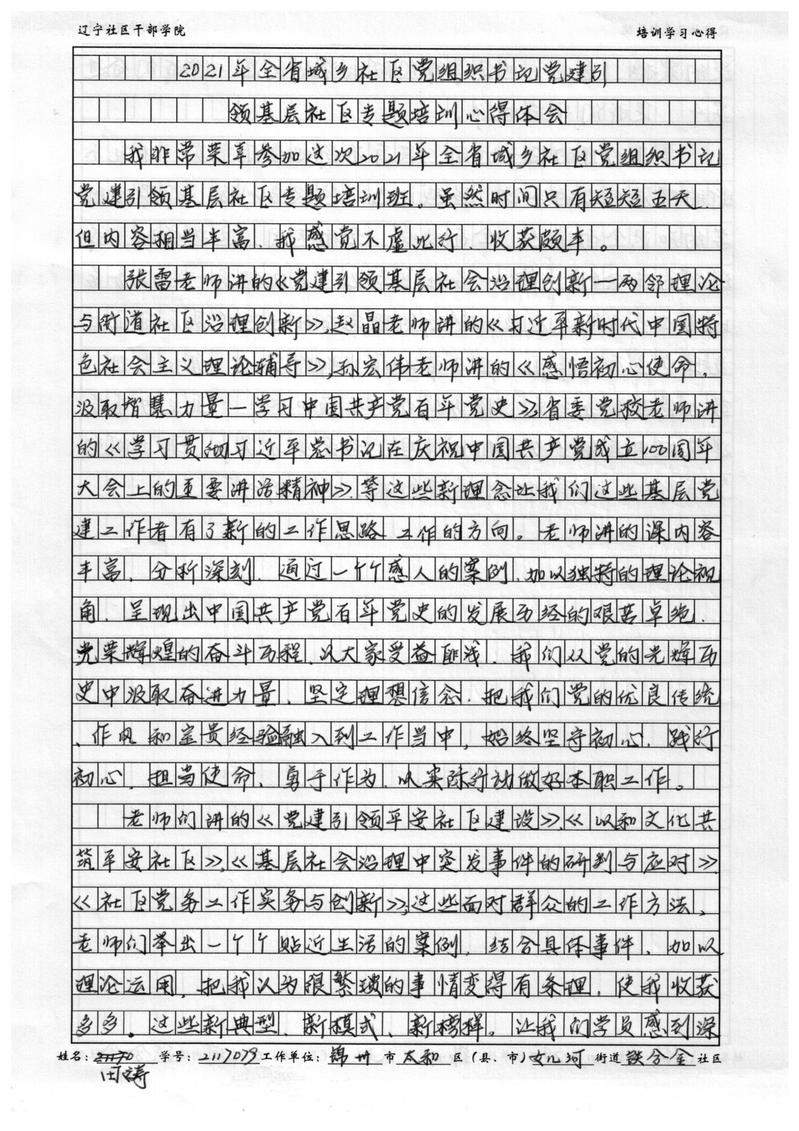 辽宁社区干部学院 培训学习心得
2021年全省城乡社区党组织书记党建引
领基层社区专题培训心得体会
我非常荣幸参加这次2021年全省城乡社区党组织书记
党建引领基层社区专题培训班，虽然时间只有短短五天，
但内容相当丰富，我感觉不虚此行，收获颇丰。
张雷老师讲的《党建引领基层社会治理创新—两邻理论
与街道社区治理创新》，赵晶老师讲的《习近平新时代中国特
色社会主义理论辅导》，孙宏伟老师讲的《感悟初心使命，
汲取智慧力量—学习中国共产党百年党史》，省委党校老师讲
的《学习贯彻习近平总书记在庆祝中国共产党成立100周年
大会上的重要讲话精神》等这些新理念让我们这些基层党
建工作者有了新的工作思路、工作的方向。老师讲的课内容
丰富，分析深刻，通过一个个感人的案例，加以独特的理论视
角，呈现出中国共产党百年党史的发展历经的艰苦卓绝，
光荣辉煌的奋斗历程，以大家受益匪浅，我们从党的光辉历
史中汲取奋进力量，坚定理想信念，把我们党的优良传统
、作风和宝贵经验融入到工作当中，始终坚守初心，践行
初心，担当使命，勇于作为，以实际行动做好本职工作。
老师们讲的《党建引领平安社区建设》，《以和文化共
筑平安社区》，《基层社会治理中突发事件的研判与应对》
《社区党务工作实务与创新》，这些面对群众的工作方法，
老师们举出一个个贴近生活的案例，结合具体事件，加以
理论运用，把我认为很繁琐的事情变得有条理，使我收获
多多。这些新典型、新模式、新榜样，让我们学员感到深
姓名： 学号：2117079 工作单位：锦州 市 太和 区（县、市）女儿河 街道 铁合金 社区
田涛